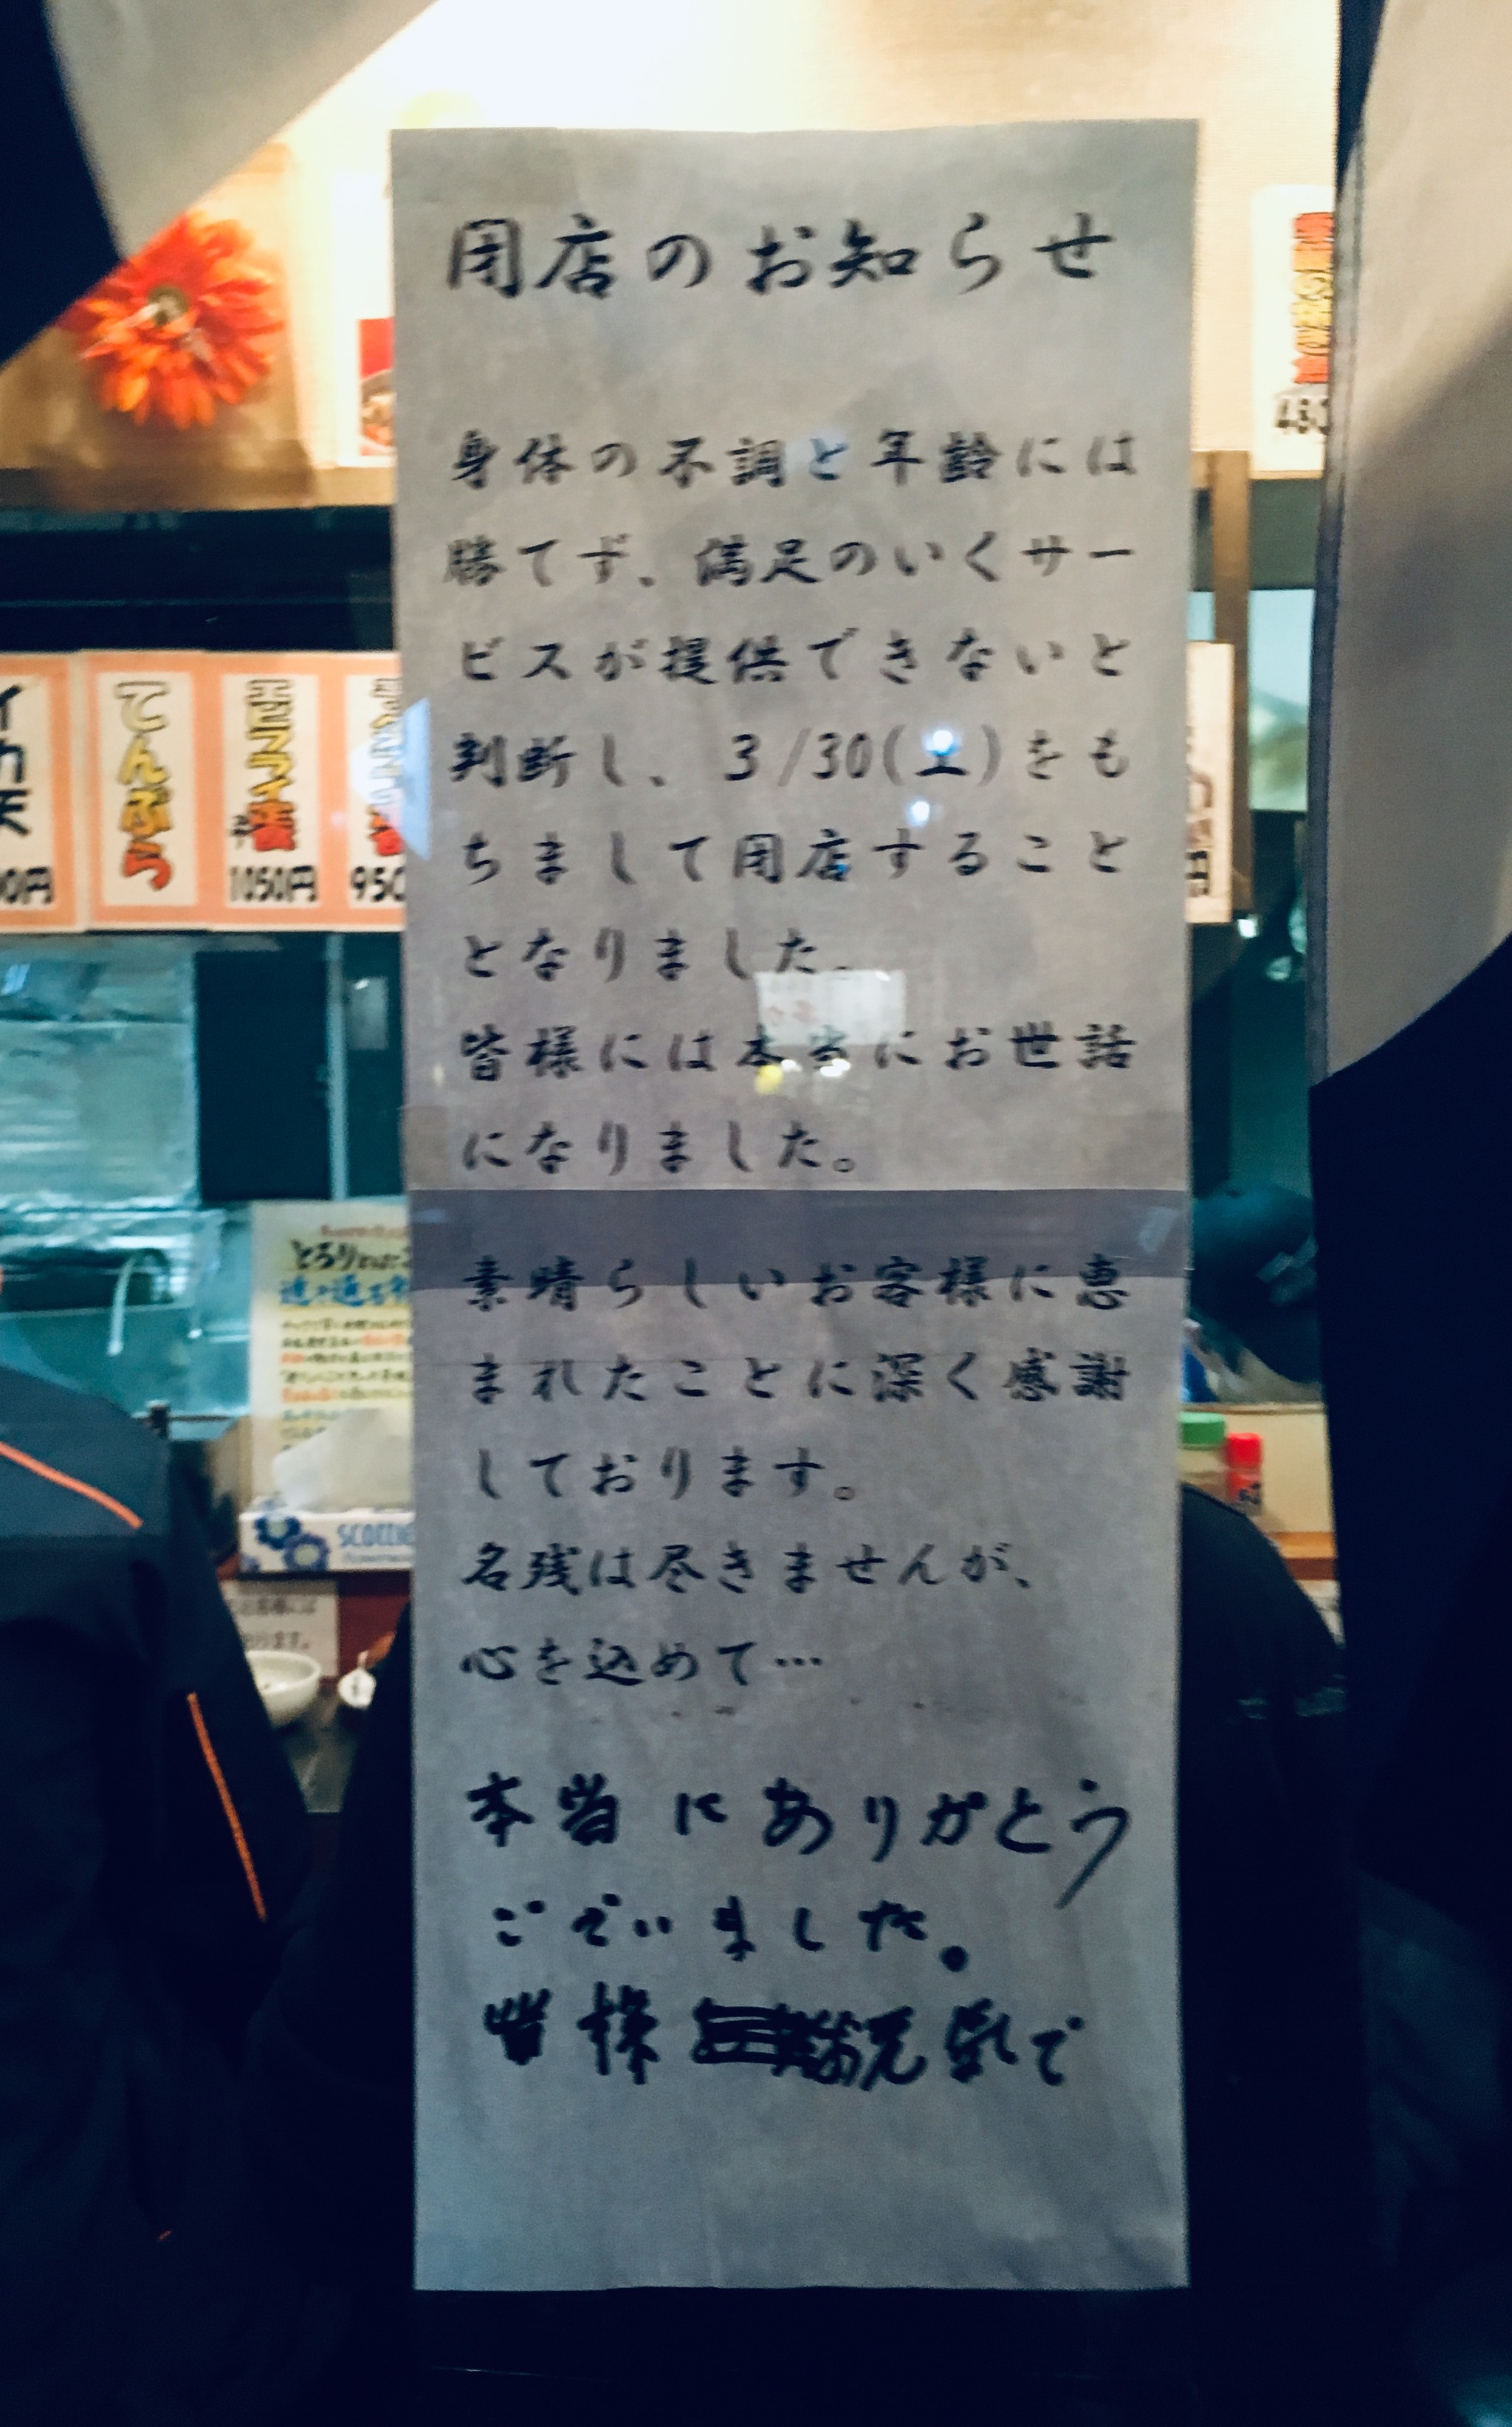 閉店のお知らせ
身体の不調と年齢には
勝てず、満足のいくサー
ビスが提供できないと
判断し、3/30(土)をも
ちまして閉店すること
となりました。
皆様には本当にお世話
になりました。
素晴らしいお客様に恵
まれたことに深く感謝
しております。
名残は尽きませんが、
心を込めて…
本当にありがとう
ございました。
皆様お元気で
てんぷら
エビフライ定食
1050円
950
480
とろり
SCOTTIE